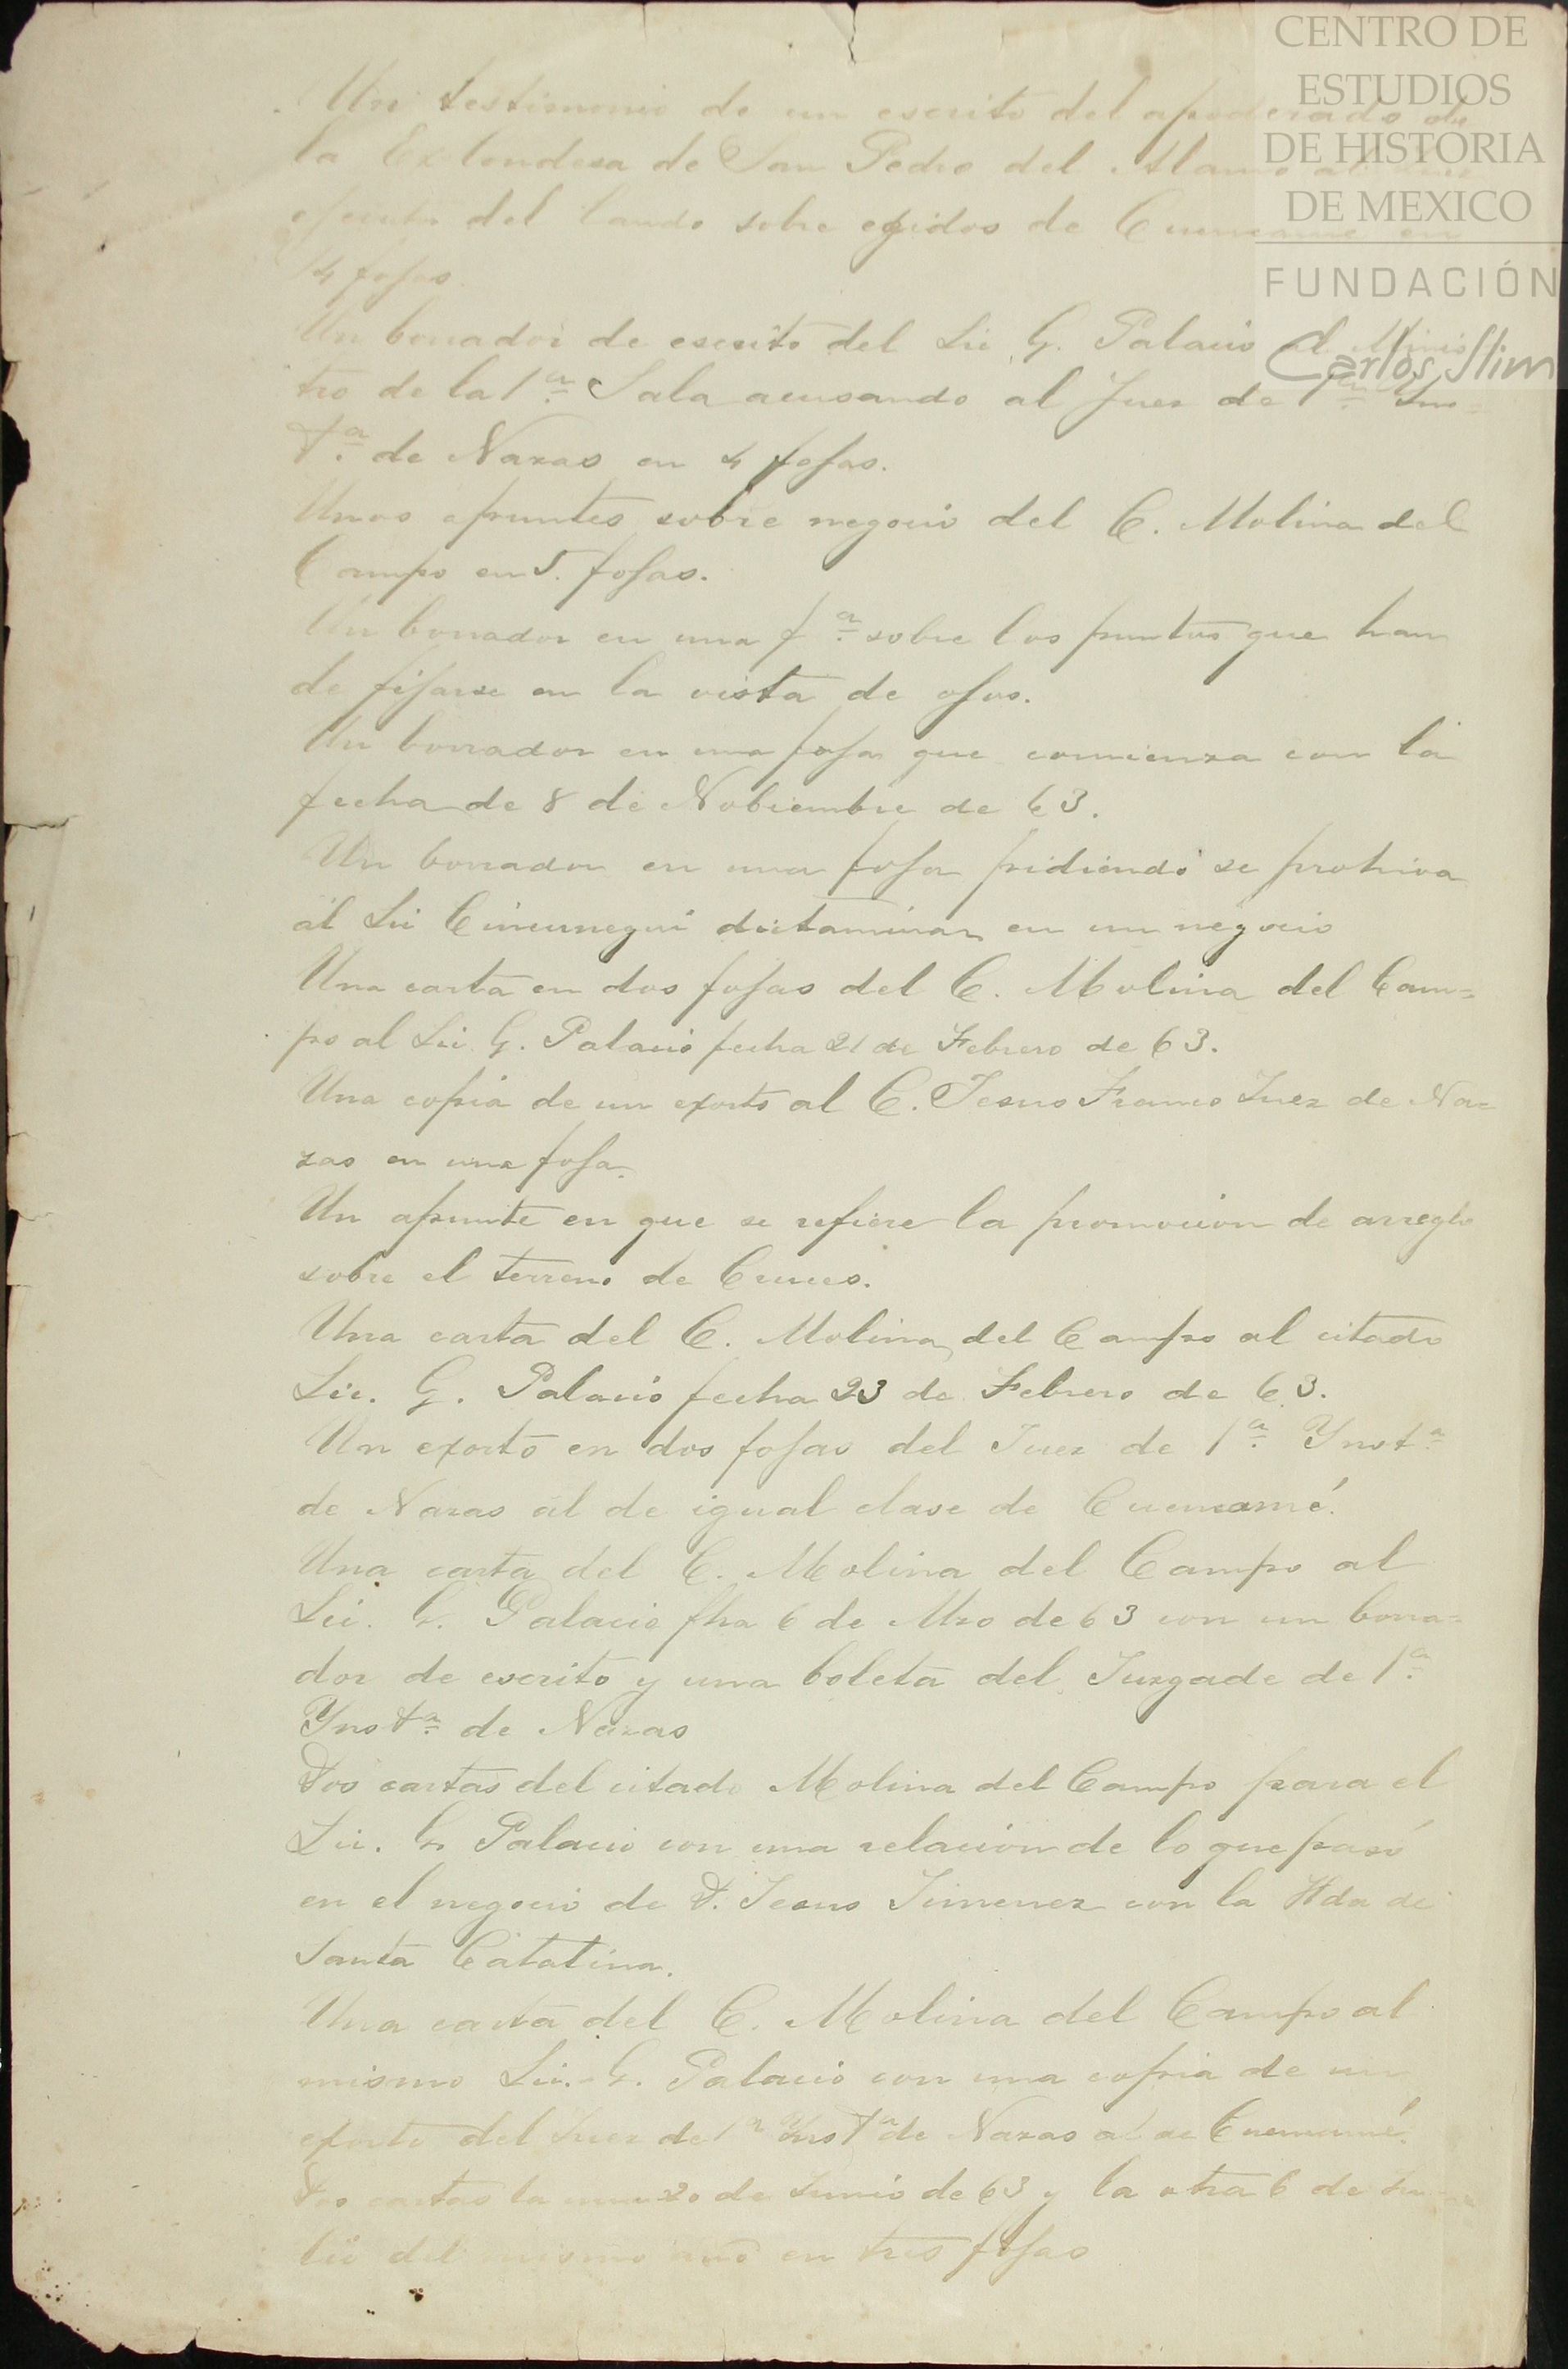 CENTRO DE
ESTUDIOS
DE HISTORIA
DE MEXICO
FUNDACIÓN
Carlos Slim
Un testimonio de un escrito del apoderado de
la Ex-condesa de San Pedro del Alamo al
efecto del laudo sobre egidos de Cuencamé en
14 fojas.
Un borrador de escrito del Lic G. Palacio al Minis
tro de la 1ª Sala acusando al Juez de 1ª Ins=
tª de Nazas en 4 fojas.
Unos apuntes sobre negocio del C. Molina del
Campo en 5. fojas.
Un borrador en una fª sobre los puntos que han
de fijarse en la vista de ojos.
Un borrador en una foja que comienza con la
fecha de 8 de Nobiembre de 63.
Un borrador en una foja pidiendo se prohiva
al Lic Cincunegui dictaminar en un negocio
Una carta en dos fojas del C. Molina del Cam=
po al Lic G. Palacio fecha 21 de Febrero de 63.
Una copia de un exorto al C. Jesus Franco Juez de Na=
zas en una foja.
Un apunte en que se refiere la promocion de arreglo
sobre el terreno de Cruces.
Una carta del C. Molina del Campo al citado
Lic. G. Palacio fecha 23 de Febrero de 63.
Un exorto en dos fojas del Juez de 1ª Ynstª
de Nazas al de igual clase de Cuencamé.
Una carta del C. Molina del Campo al
Lic. G. Palacio fha 6 de Mzo de 63 con un borra=
dor de escrito y una boleta del Juzgado de 1ª
Ynstª de Nazas
Dos cartas del citado Molina del Campo para el
Lic. G Palacio con una relacion de lo que pasó
en el negocio de D. Jesus Jimenez con la Hda de
Santa Catatina.
Una carta del C. Molina del Campo al
mismo Lic. G. Palacio con una copia de un
exorto del Juez de 1ª Ynstª de Nazas al de Cuencamé.
Dos cartas la una 20 de Junio de 63 y la otra 6 de Ju
lio del mismo año en tres fojas